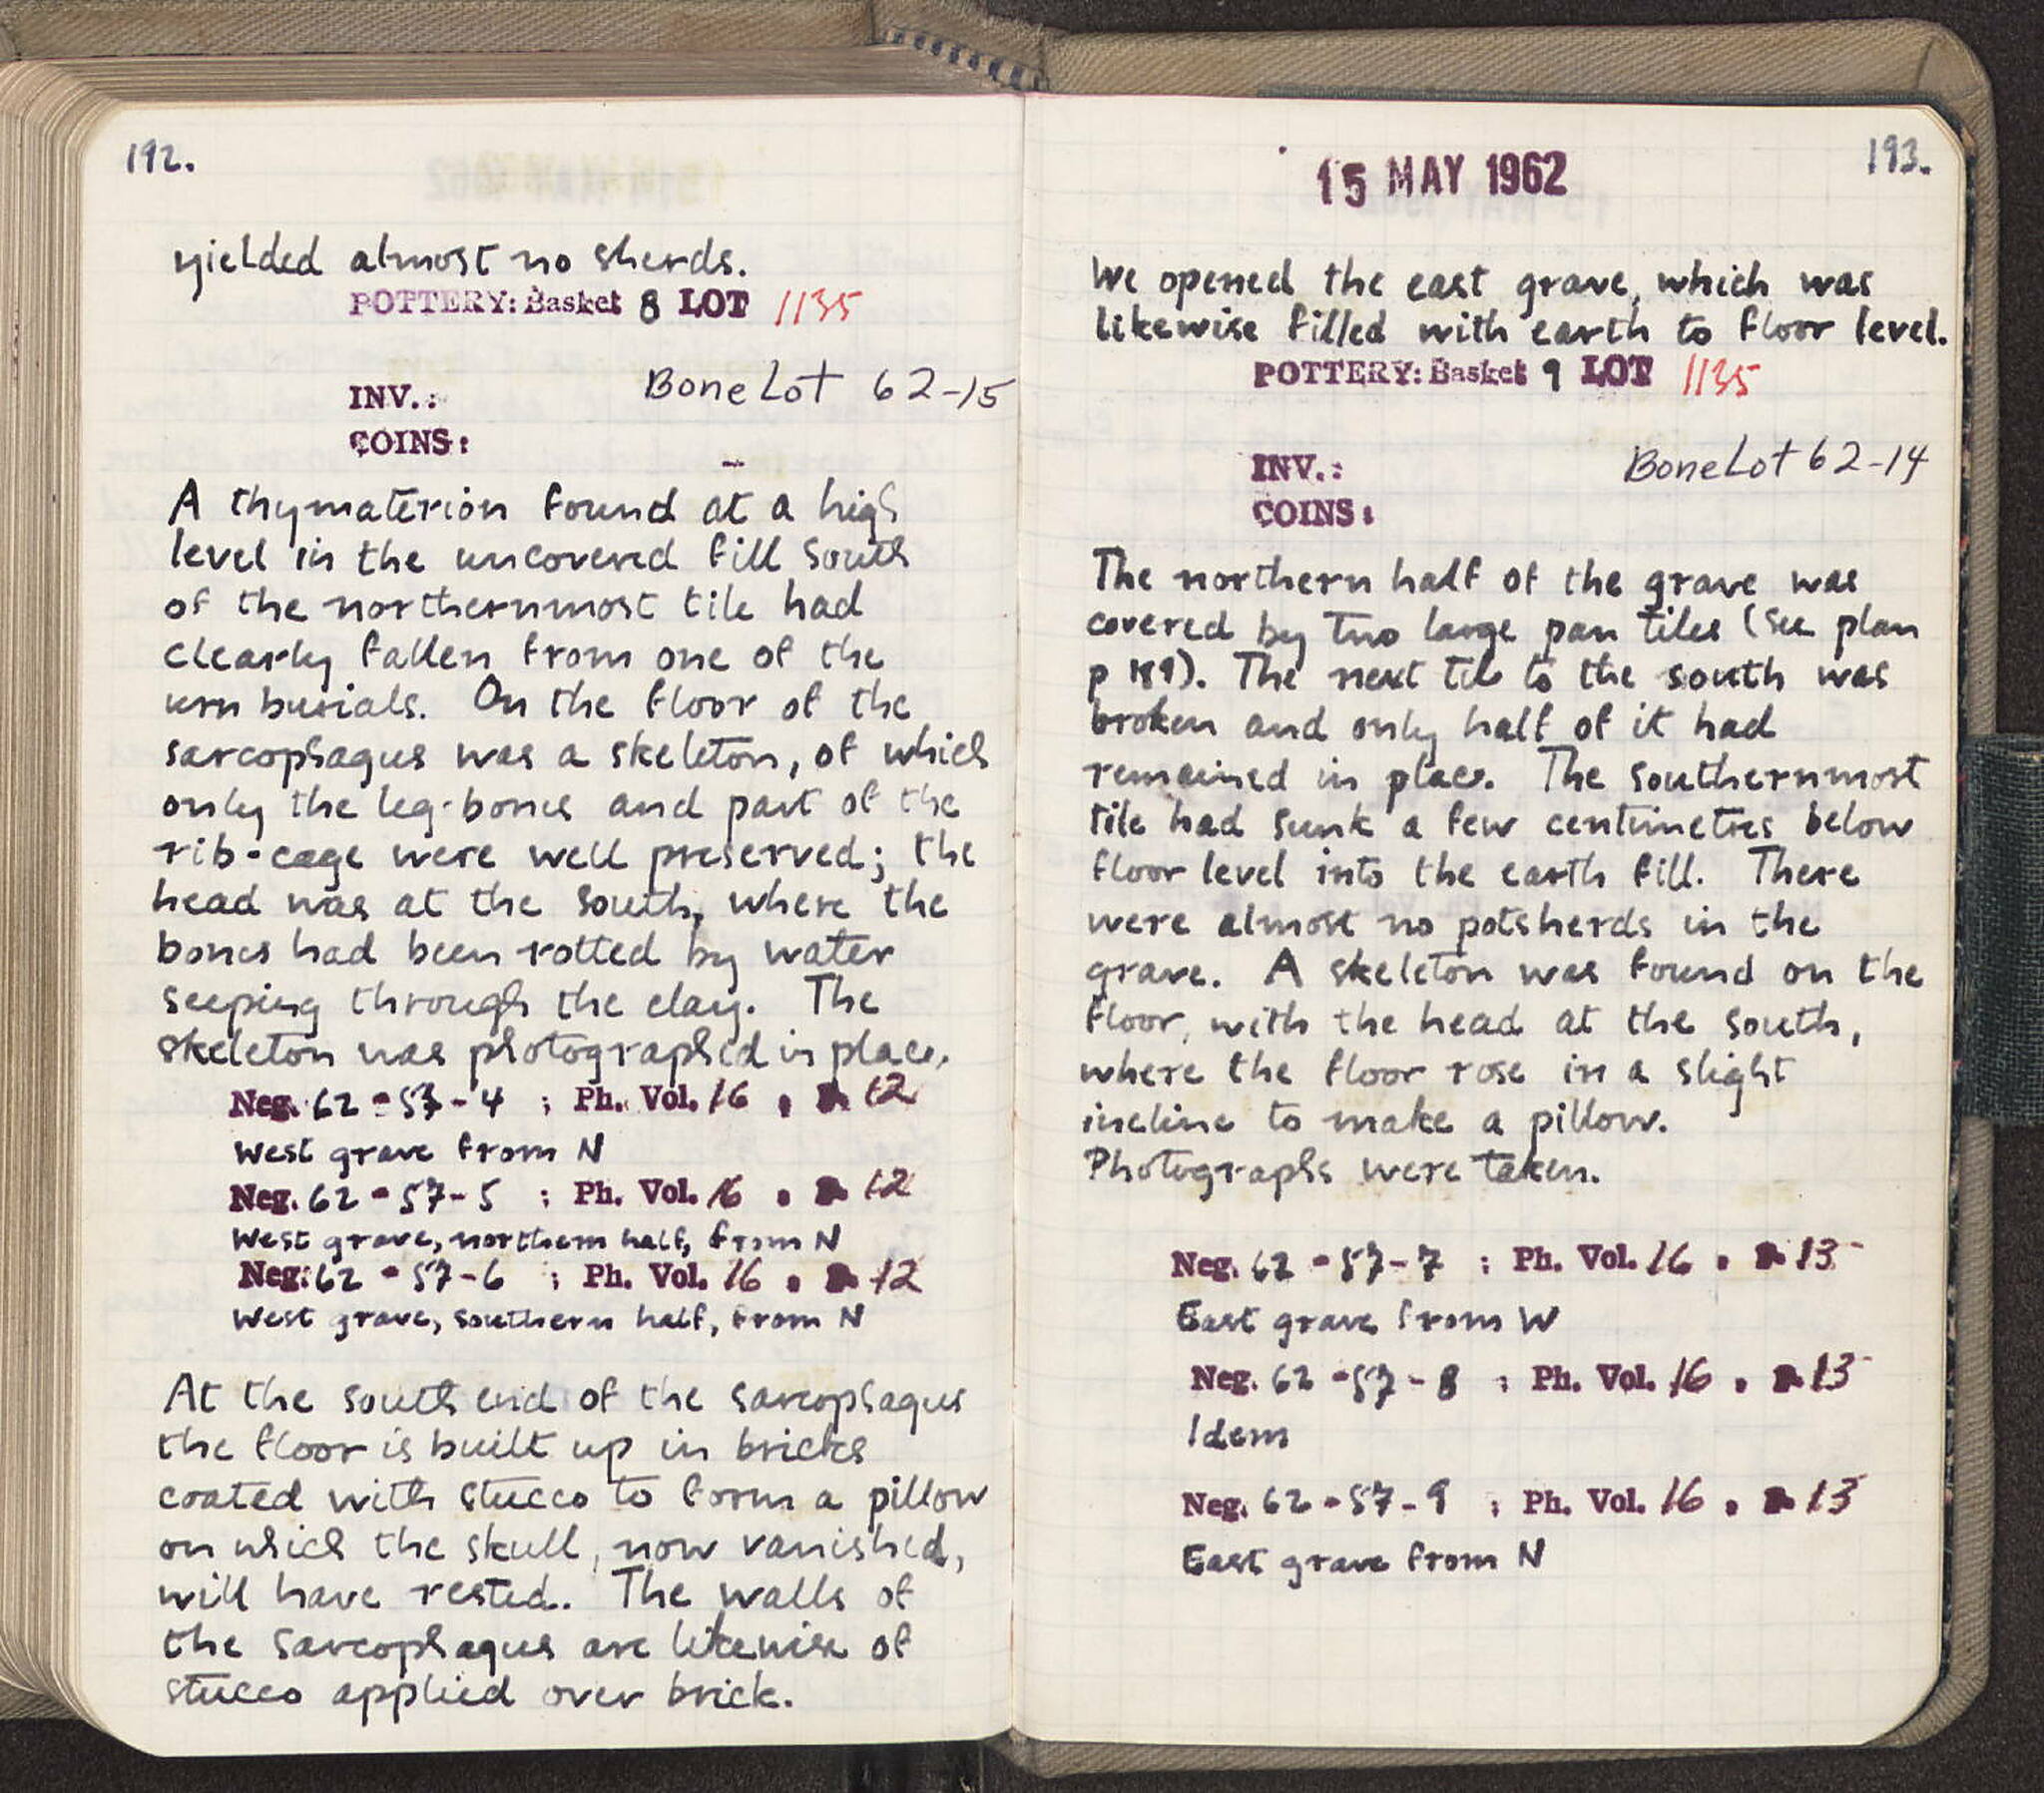 192.
yielded almost no sherds.
POTTERY: Basket 8 LOT 1135
INV.: Bone Lot 62-15
COINS:
A thymaterion found at a high
level in the uncovered fill south
of the northernmost tile had
clearly fallen from one of the
urn burials. On the floor of the
sarcophagus was a skeleton, of which
only the leg-bones and part of the
rib-cage were well preserved; the
head was at the south, where the
bones had been rotted by water
seeping through the clay. The
skeleton was photographed in place.
Neg. 62-57-4 ; Ph. Vol. 16 . 12
West grave from N
Neg. 62-57-5 ; Ph. Vol. 16 . 12
West grave, northern half, from N
Neg. 62-57-6 ; Ph. Vol. 16 . 12
West grave, southern half, from N
At the south end of the sarcophagus
the floor is built up in bricks
coated with stucco to form a pillow
on which the skull, now vanished,
will have rested. The walls of
the sarcophagus are likewise of
stucco applied over brick.
193.
15 MAY 1962
We opened the east grave, which was
likewise filled with earth to floor level.
POTTERY: Basket 9 LOT 1135
INV.: Bone Lot 62-14
COINS:
The northern half of the grave was
covered by two large pan tiles (see plan
p 189). The next tile to the south was
broken and only half of it had
remained in place. The southernmost
tile had sunk a few centimetres below
floor level into the earth fill. There
were almost no potsherds in the
grave. A skeleton was found on the
floor, with the head at the south,
where the floor rose in a slight
incline to make a pillow.
Photographs were taken.
Neg. 62-57-7 ; Ph. Vol. 16 . 13
East grave from W
Neg. 62-57-8 ; Ph. Vol. 16 . 13
Idem
Neg. 62-57-9 ; Ph. Vol. 16 . 13
East grave from N